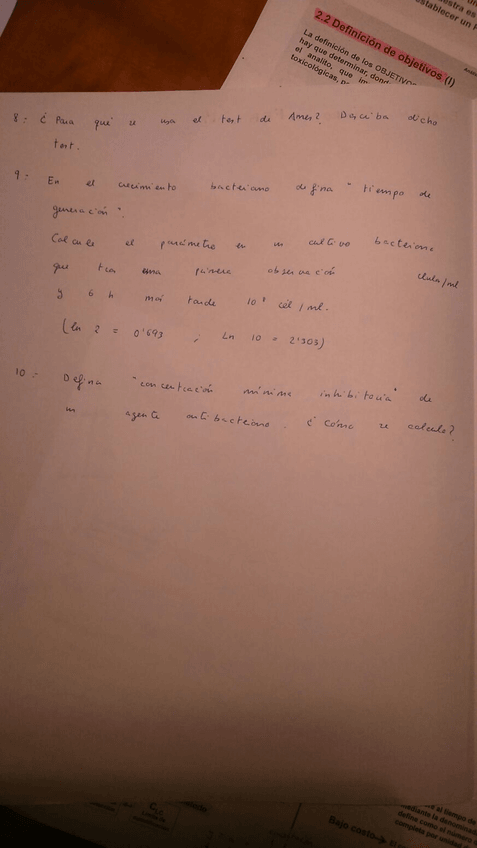 establecer un
2.2 Definición de objetivos (I)
La definición de los OBJETIVO
hay que determinar, dond
el analito, que
toxicológicas,
8 = ¿ Para qué se usa el test de Ames? Describa dicho
test.
9 = En el crecimiento bacteriano defina " tiempo de
generación ".
Calcule el parámetro en un cultivo bacteriano
que tras una primera observación célula/ml
y 6 h más tarde cél / ml.
(ln 2 = 0'693 ; Ln 10 = 2'303)
10 = Defina "concentración mínima inhibitoria" de
un agente antibacteriano. ¿ Cómo se calcula?
al tiempo de
mediante la denomina
define como el número
completo por unidad
Bajo costo